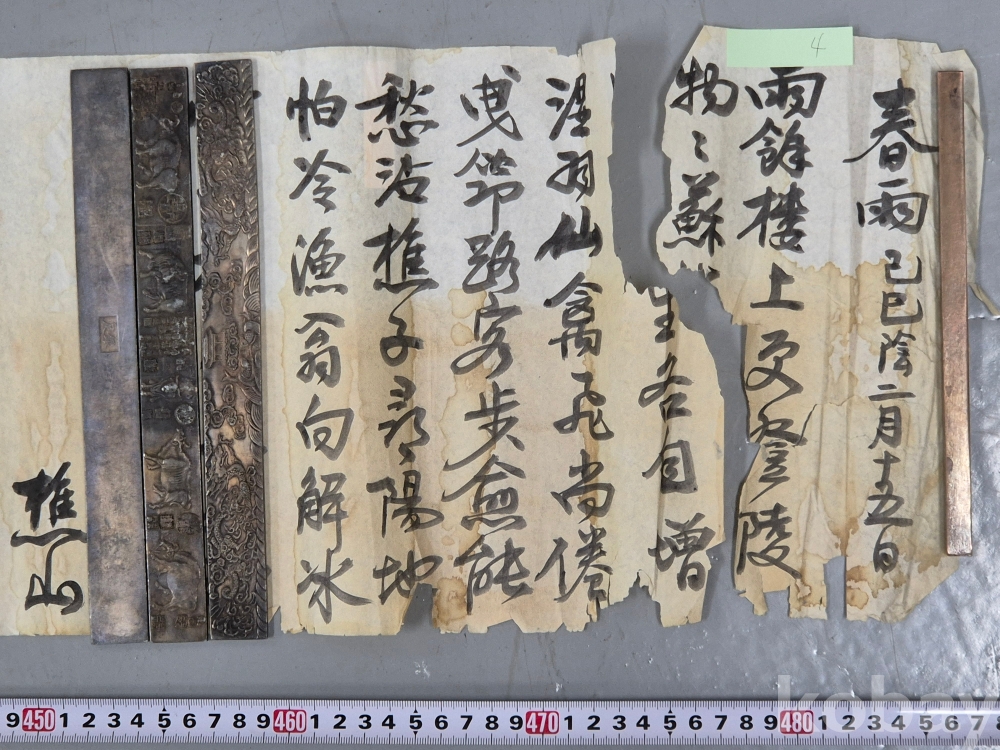 春雨 己巳陰二月十五日
雨餘樓上更登陵
物〻蘇生各自增
湿羽仙禽飛尚倦
曳筇路客步愈能
愁沾樵子尋陽地
怕冷漁翁向解冰
樵山
4
9 450 1 2 3 4 5 6 7 8 9 460 1 2 3 4 5 6 7 8 9 470 1 2 3 4 5 6 7 8 9 480 1 2 3 4 5 6 7
kobay